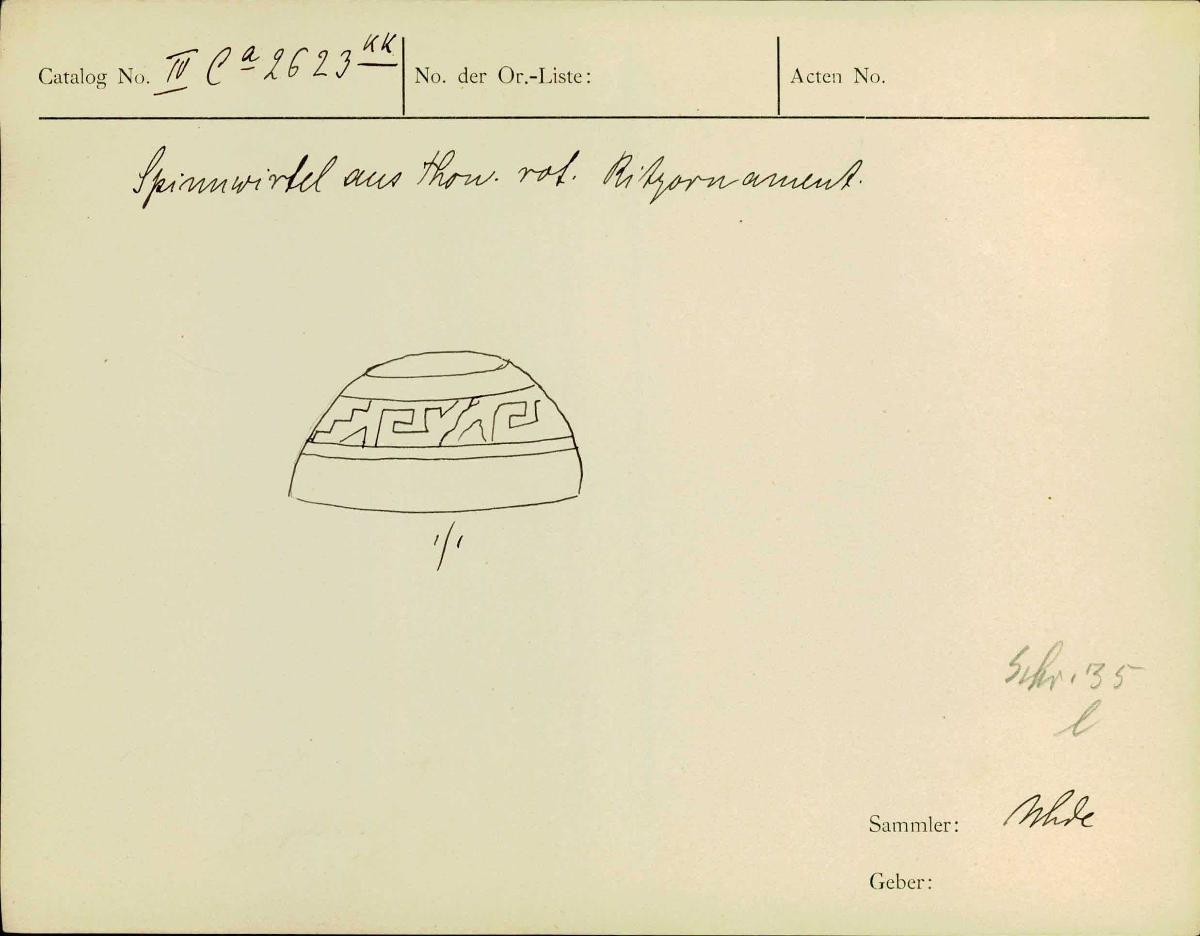 Catalog No. IV Ca 2623 KK No. der Or.-Liste: Acten No.
Spinnwirtel aus Thon. rot. Ritzornament.
1/1
Schr. 35
l
Sammler: Uhde
Geber: